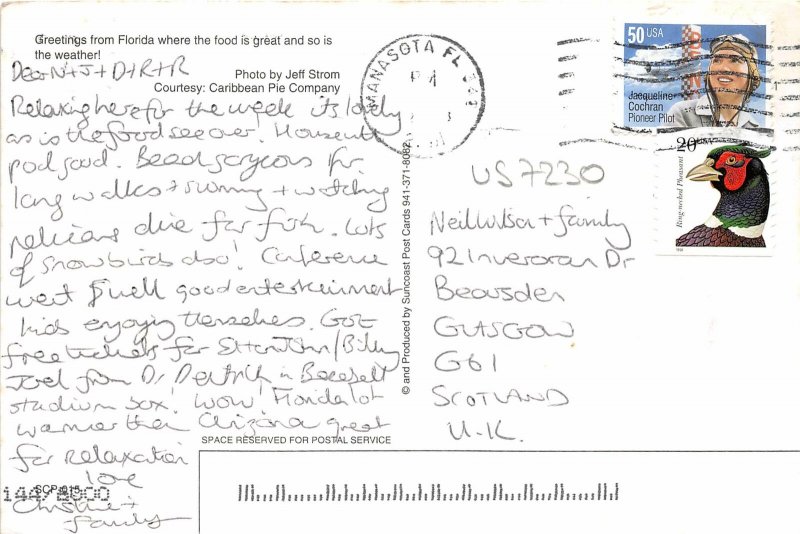 Greetings from Florida where the food is great and so is
the weather!
Photo by Jeff Strom
Courtesy: Caribbean Pie Company
Dear N+J+D+R+R
Relaxing here for the week its lovely
as is the food see over. House with
pool good. Beach gorgeous for
long walks + + watching
pelicans dive for fish. Lots
of snowbirds also! Conference
went well good entertainment
kids enjoying themselves. Got
free tickets for Elton John/Billy
Joel from Dr in Baseball
stadium sox! Wow! Florida lot
warmer than Arizona great
for relaxation
love
Christine +
family
SCP-015
144/8000
© and Produced by Suncoast Post Cards 941-371-8082
SPACE RESERVED FOR POSTAL SERVICE
MANASOTA FL
50 USA
Jacqueline
Cochran
Pioneer Pilot
20
Ring-necked Pheasant
1998
US7230
Neil Wilson + family
92 Inveroran Dr
Bearsden
GLASGOW
G61
SCOTLAND
U.K.